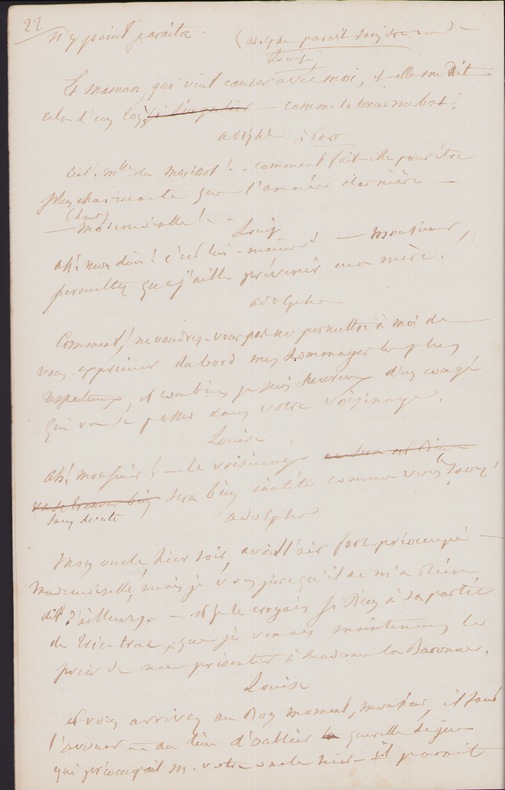 22
n'y point paraître. (adolphe parait sans être vu de
Louise)
Et maman qui vient causer avec moi, et elle me dit
cela d'un — comme le cœur me bat!
adolphe à part
C'est Mlle de ! — comment fait-elle pour être
plus charmante que l'année dernière —
(haut)
— Mademoiselle! — Louise
ah! mon dieu! c'est lui-même! — Monsieur,
permettez que j'aille prévenir ma mère.
adolphe
Comment! ne voudrez-vous pas me permettre à moi de
vous exprimer dabord mes hommages les plus
respectueux, et combien je suis heureux d'un congé
qui va se passer dans votre voisinage.
Louise
ah! monsieur! — le voisinage
sera bien comme vous
sans doute
adolphe
Mon oncle, hier soir, avait l'air fort préoccupé —
Mademoiselle, mais je vous jure qu'il ne m'a rien
dit d'ailleurs — et je le croyais si bien à sa partie
de tric-trac, que je venais maintenant le
prier de me présenter à madame la Baronne.
Louise
et vous arrivez au bon moment, monsieur, il faut
l'avouer — au lieu d'oublier la querelle
qui préoccupait M. votre oncle hier — il parait